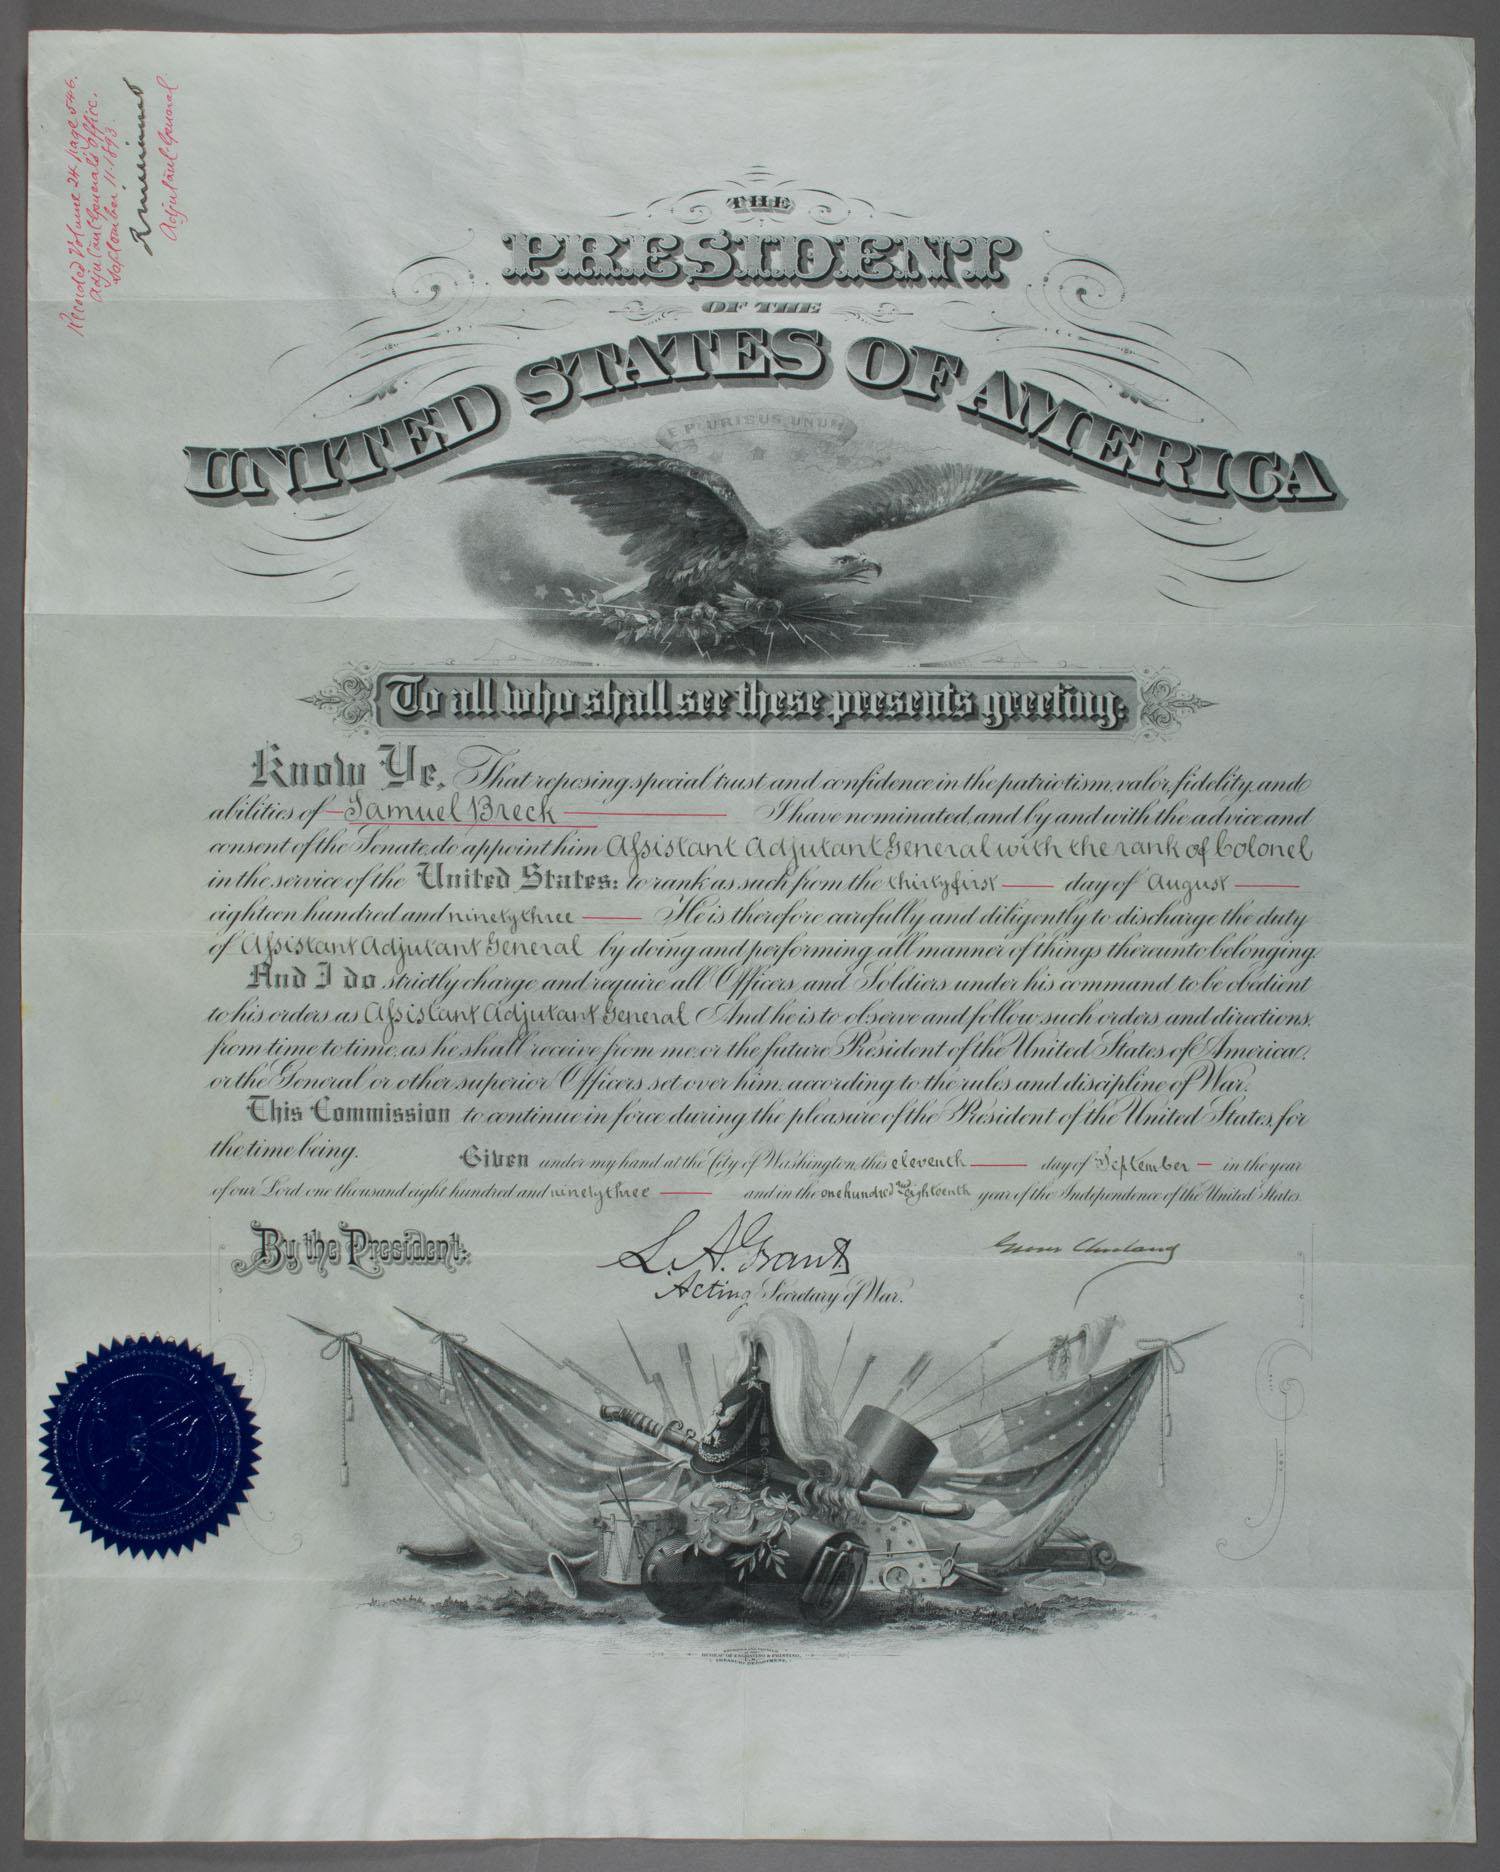 Recorded Volume 24 page 546.
Adjutant General's Office.
September 11. 1893.
Adjutant General
THE
PRESIDENT
OF THE
UNITED STATES OF AMERICA
E PLURIBUS UNUM
To all who shall see these presents greeting:
Know Ye, That reposing special trust and confidence in the patriotism, valor, fidelity, and
abilities of Samuel Breck I have nominated, and by and with the advice and
consent of the Senate, do appoint him Assistant Adjutant General with the rank of Colonel
in the service of the United States: to rank as such from the thirty first day of August
eighteen hundred and ninety three He is therefore carefully and diligently to discharge the duty
of Assistant Adjutant General by doing and performing all manner of things thereunto belonging.
And I do strictly charge and require all Officers and Soldiers under his command to be obedient
to his orders as Assistant Adjutant General And he is to observe and follow such orders, and directions,
from time to time, as he shall receive from me, or the future President of the United States of America,
or the General or other superior Officers set over him, according to the rules and discipline of War.
This Commission to continue in force during the pleasure of the President of the United States, for
the time being. Given under my hand at the City of Washington, this eleventh day of September in the year
of our Lord one thousand eight hundred and ninety three and in the one hundred and eighteenth year of the Independence of the United States.
By the President:
L. A. Grant
Grover Cleveland
Acting Secretary of War.
BUREAU OF ENGRAVING & PRINTING.
TREASURY DEPARTMENT.